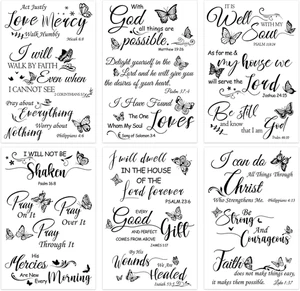 Act Justly
Love Mercy
Walk Humbly
Micah 6:8
I will
WALK BY FAITH
Even when
I CANNOT SEE
2 CORINTHIANS 5:7
Pray about
Everything
Worry about
Nothing
Philippians 4:6
With
GOD
all things are
possible.
Matthew 19:26
Delight yourself in the
Lord and he will give you
the desires of your heart.
Psalm 37:4
I Have Found
The One
Whom My Soul
Loves
Song of Solomon 3:4
IT IS
Well
WITH MY
SOUL
PSALM 116:14
As for me &
my house we
will serve the Lord
Joshua 24:15
Be Still
and know
that I am
God
Psalm 46:10
I WILL NOT BE
Shaken
Psalm 16:8
Pray
On It
Pray
Over It
Pray
Through It
His
Mercies
Are New
Every Morning
I will dwell
IN THE HOUSE
OF THE
Lord forever
PSALM 23:6
EVERY
Good
AND
PERFECT
Gift
COMES FROM ABOVE
By His
Wounds
We Are
Healed
Isaiah 53:5
I can do
All Things Through
Christ
Who Strengthens Me.
Philippians 4:13
Be
Strong
And
Courageous
Faith
does not make things easy,
it makes them possible.
Luke 1:37